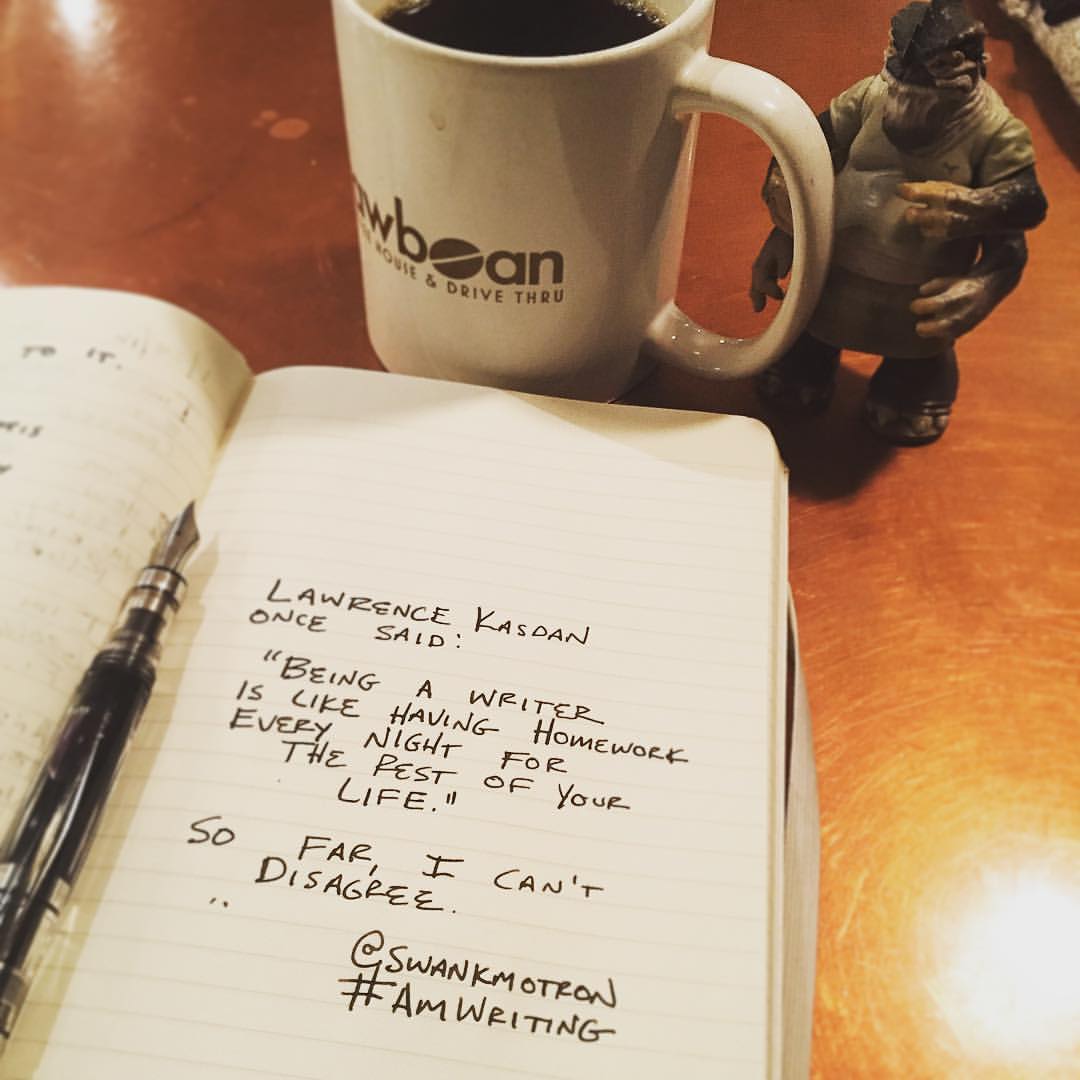 wbean
HOUSE & DRIVE THRU
TO IT.
LAWRENCE KASDAN
ONCE SAID:
"BEING A WRITER
IS LIKE HAVING HOMEWORK
EVERY NIGHT FOR
THE REST OF YOUR
LIFE."
SO FAR, I CAN'T
DISAGREE.
@SWANKMOTRON
#AMWRITING